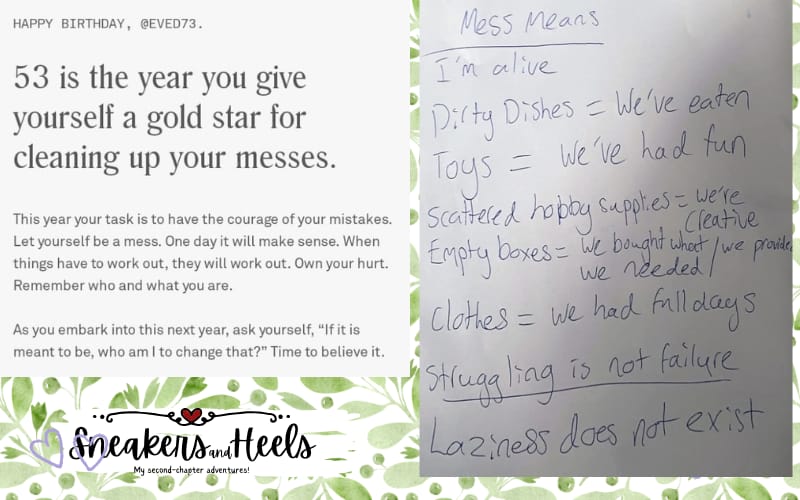 HAPPY BIRTHDAY, @EVED73.
53 is the year you give
yourself a gold star for
cleaning up your messes.
This year your task is to have the courage of your mistakes.
Let yourself be a mess. One day it will make sense. When
things have to work out, they will work out. Own your hurt.
Remember who and what you are.
As you embark into this next year, ask yourself, “If it is
meant to be, who am I to change that?” Time to believe it.
Sneakers and Heels
My second-chapter adventures!
Mess Means
I'm alive
Dirty Dishes = We've eaten
Toys = We've had fun
Scattered hobby supplies = we're
creative
Empty boxes = we bought what / we provided
we needed /
Clothes = we had full days
Struggling is not failure
Laziness does not exist